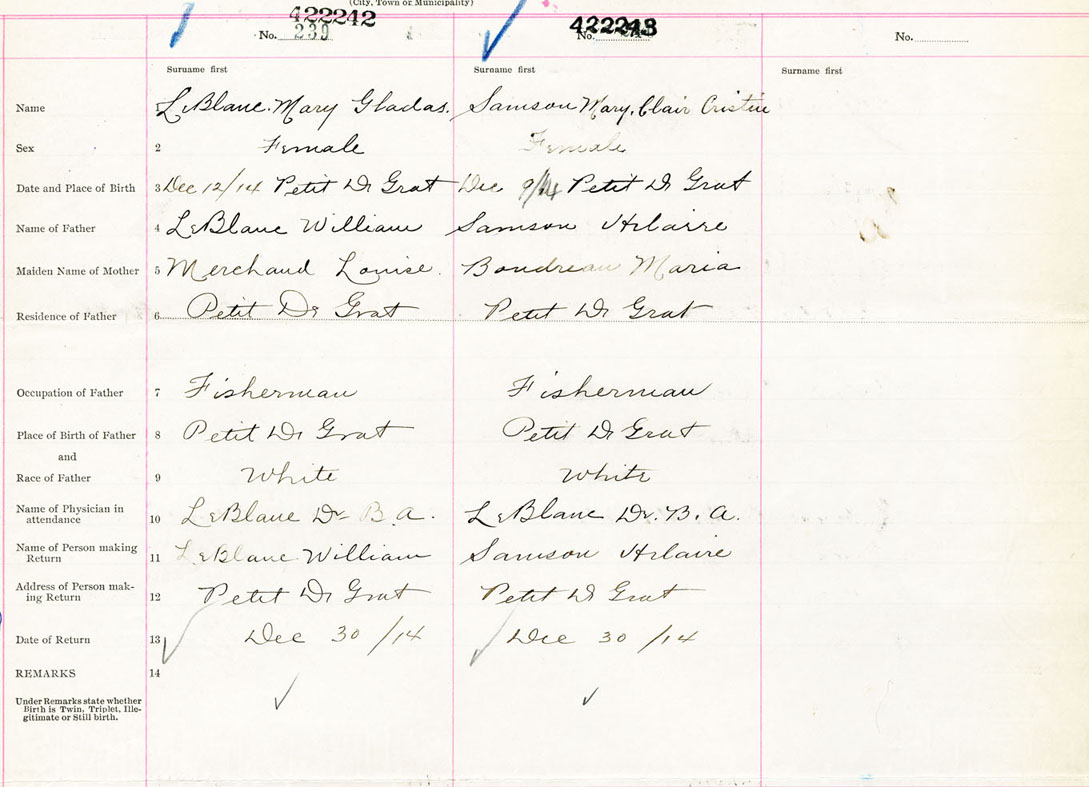 (City, Town or Municipality)
422242 422243
No. 239 No. No.
Surname first Surname first Surname first
Name 1 LeBlanc. Mary Gladas. Samson Mary, Clair Cristine
Sex 2 Female Female
Date and Place of Birth 3 Dec 12/14 Petit De Grat Dec 9/14 Petit D Grat
Name of Father 4 LeBlanc William Samson Hilaire
Maiden Name of Mother 5 Merchand Louise. Boudreau Maria
Residence of Father 6 Petit De Grat Petit De Grat
Occupation of Father 7 Fisherman Fisherman
Place of Birth of Father 8 Petit De Grat Petit D Grat
and
Race of Father 9 White White
Name of Physician in
attendance 10 LeBlanc Dr B.A. LeBlanc Dr. B. A.
Name of Person making
Return 11 LeBlanc William Samson Hilaire
Address of Person mak-
ing Return 12 Petit De Grat Petit D Grat
Date of Return 13 Dec 30/14 Dec 30/14
REMARKS 14
Under Remarks state whether
Birth is Twin, Triplet, Ille-
gitimate or Still birth.